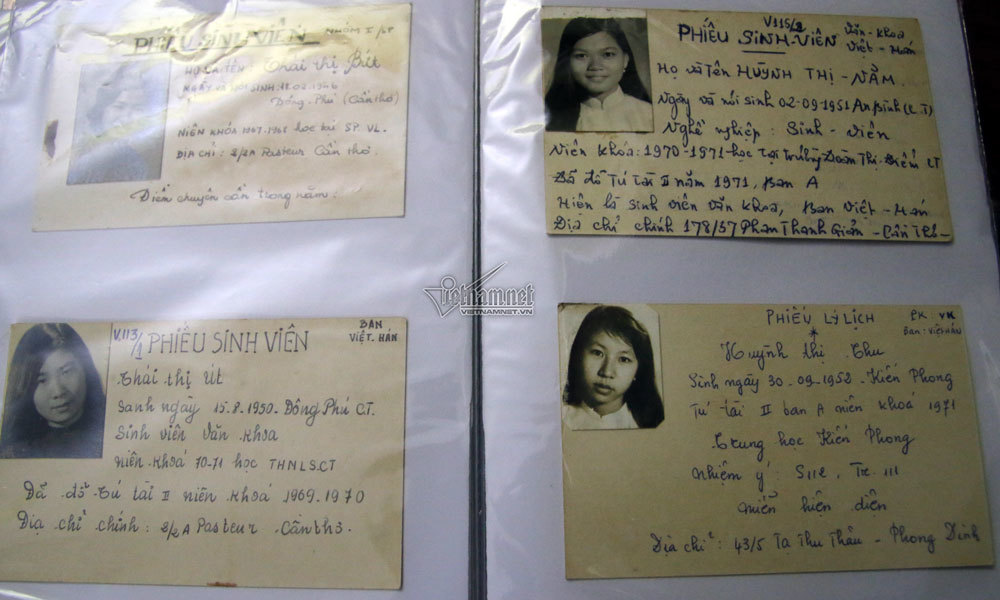 PHIẾU SINH VIÊN NHÓM I/LP
HỌ VÀ TÊN: Thái thị Bút
NGÀY VÀ NƠI SINH: 12.02.1946
Đông-Phú (Cần thơ)
NIÊN KHÓA 1967-1968 học tại SP. VL.
ĐỊA CHỈ: 2/2A Pasteur Cần thơ.
Điểm chuyên cần trong năm:
V115/2
PHIẾU SINH-VIÊN
Văn-Khoa
Việt-Hán
Họ và Tên HUỲNH THỊ-NĂM
Ngày và nơi sinh 02-09-1951 An Bình
Nghề nghiệp: Sinh-Viên
Niên Khóa: 1970-1971-học tại trường Đoàn Thị Điểm CT
Đã đỗ Tú tài II năm 1971, Ban A
Hiện là sinh viên văn khoa, Ban Việt-Hán
Địa chỉ chính 178/57 Phan Thanh Giản-Cần Thơ-
Vietnam.net
VIETNAMNET.VN
V.113/1
PHIẾU SINH VIÊN
BAN
VIỆT. HÁN
Thái thị Út
Sanh ngày 15.8.1950-Đông Phú C.T.
Sinh viên Văn Khoa
niên khoá 70-71 học THNLS.CT
Đã đỗ Tú tài II niên khoá 1969-1970
Địa chỉ chính: 2/2A Pasteur Cần thơ.
PHIẾU LÝ LỊCH
ĐK: VK
Ban: VIỆT HÁN
Huỳnh thị Thu
Sinh ngày 30-09-1952-Kiến Phong
Tú tài II ban A niên khoá 1971
Trung học Kiến Phong
nhiệm ý: S112, Tr. 111
miễn hiện diện
Địa chỉ: 43/5 Tạ Thu Thâu-Phong Dinh